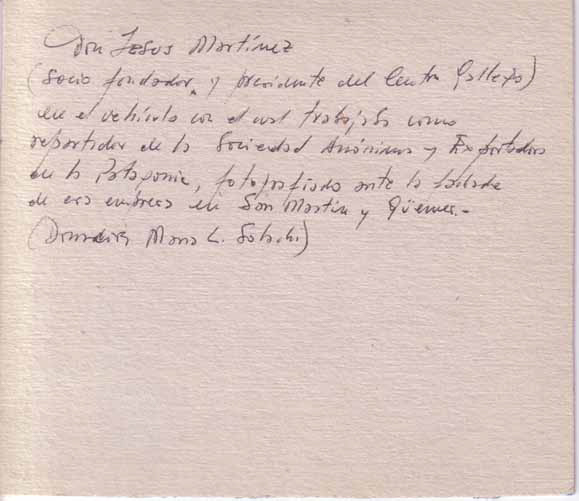 Don Jesus Martínez
(Socio fundador, y presidente del Centro Gallego)
en el vehículo con el cual trabajaba como
repartidor de la Sociedad Anónima y Exportadora
de la Patagonia, fotografiado ante la fachada
de esa empresa en San Martin y Güemes.-
(Donación Maria L.